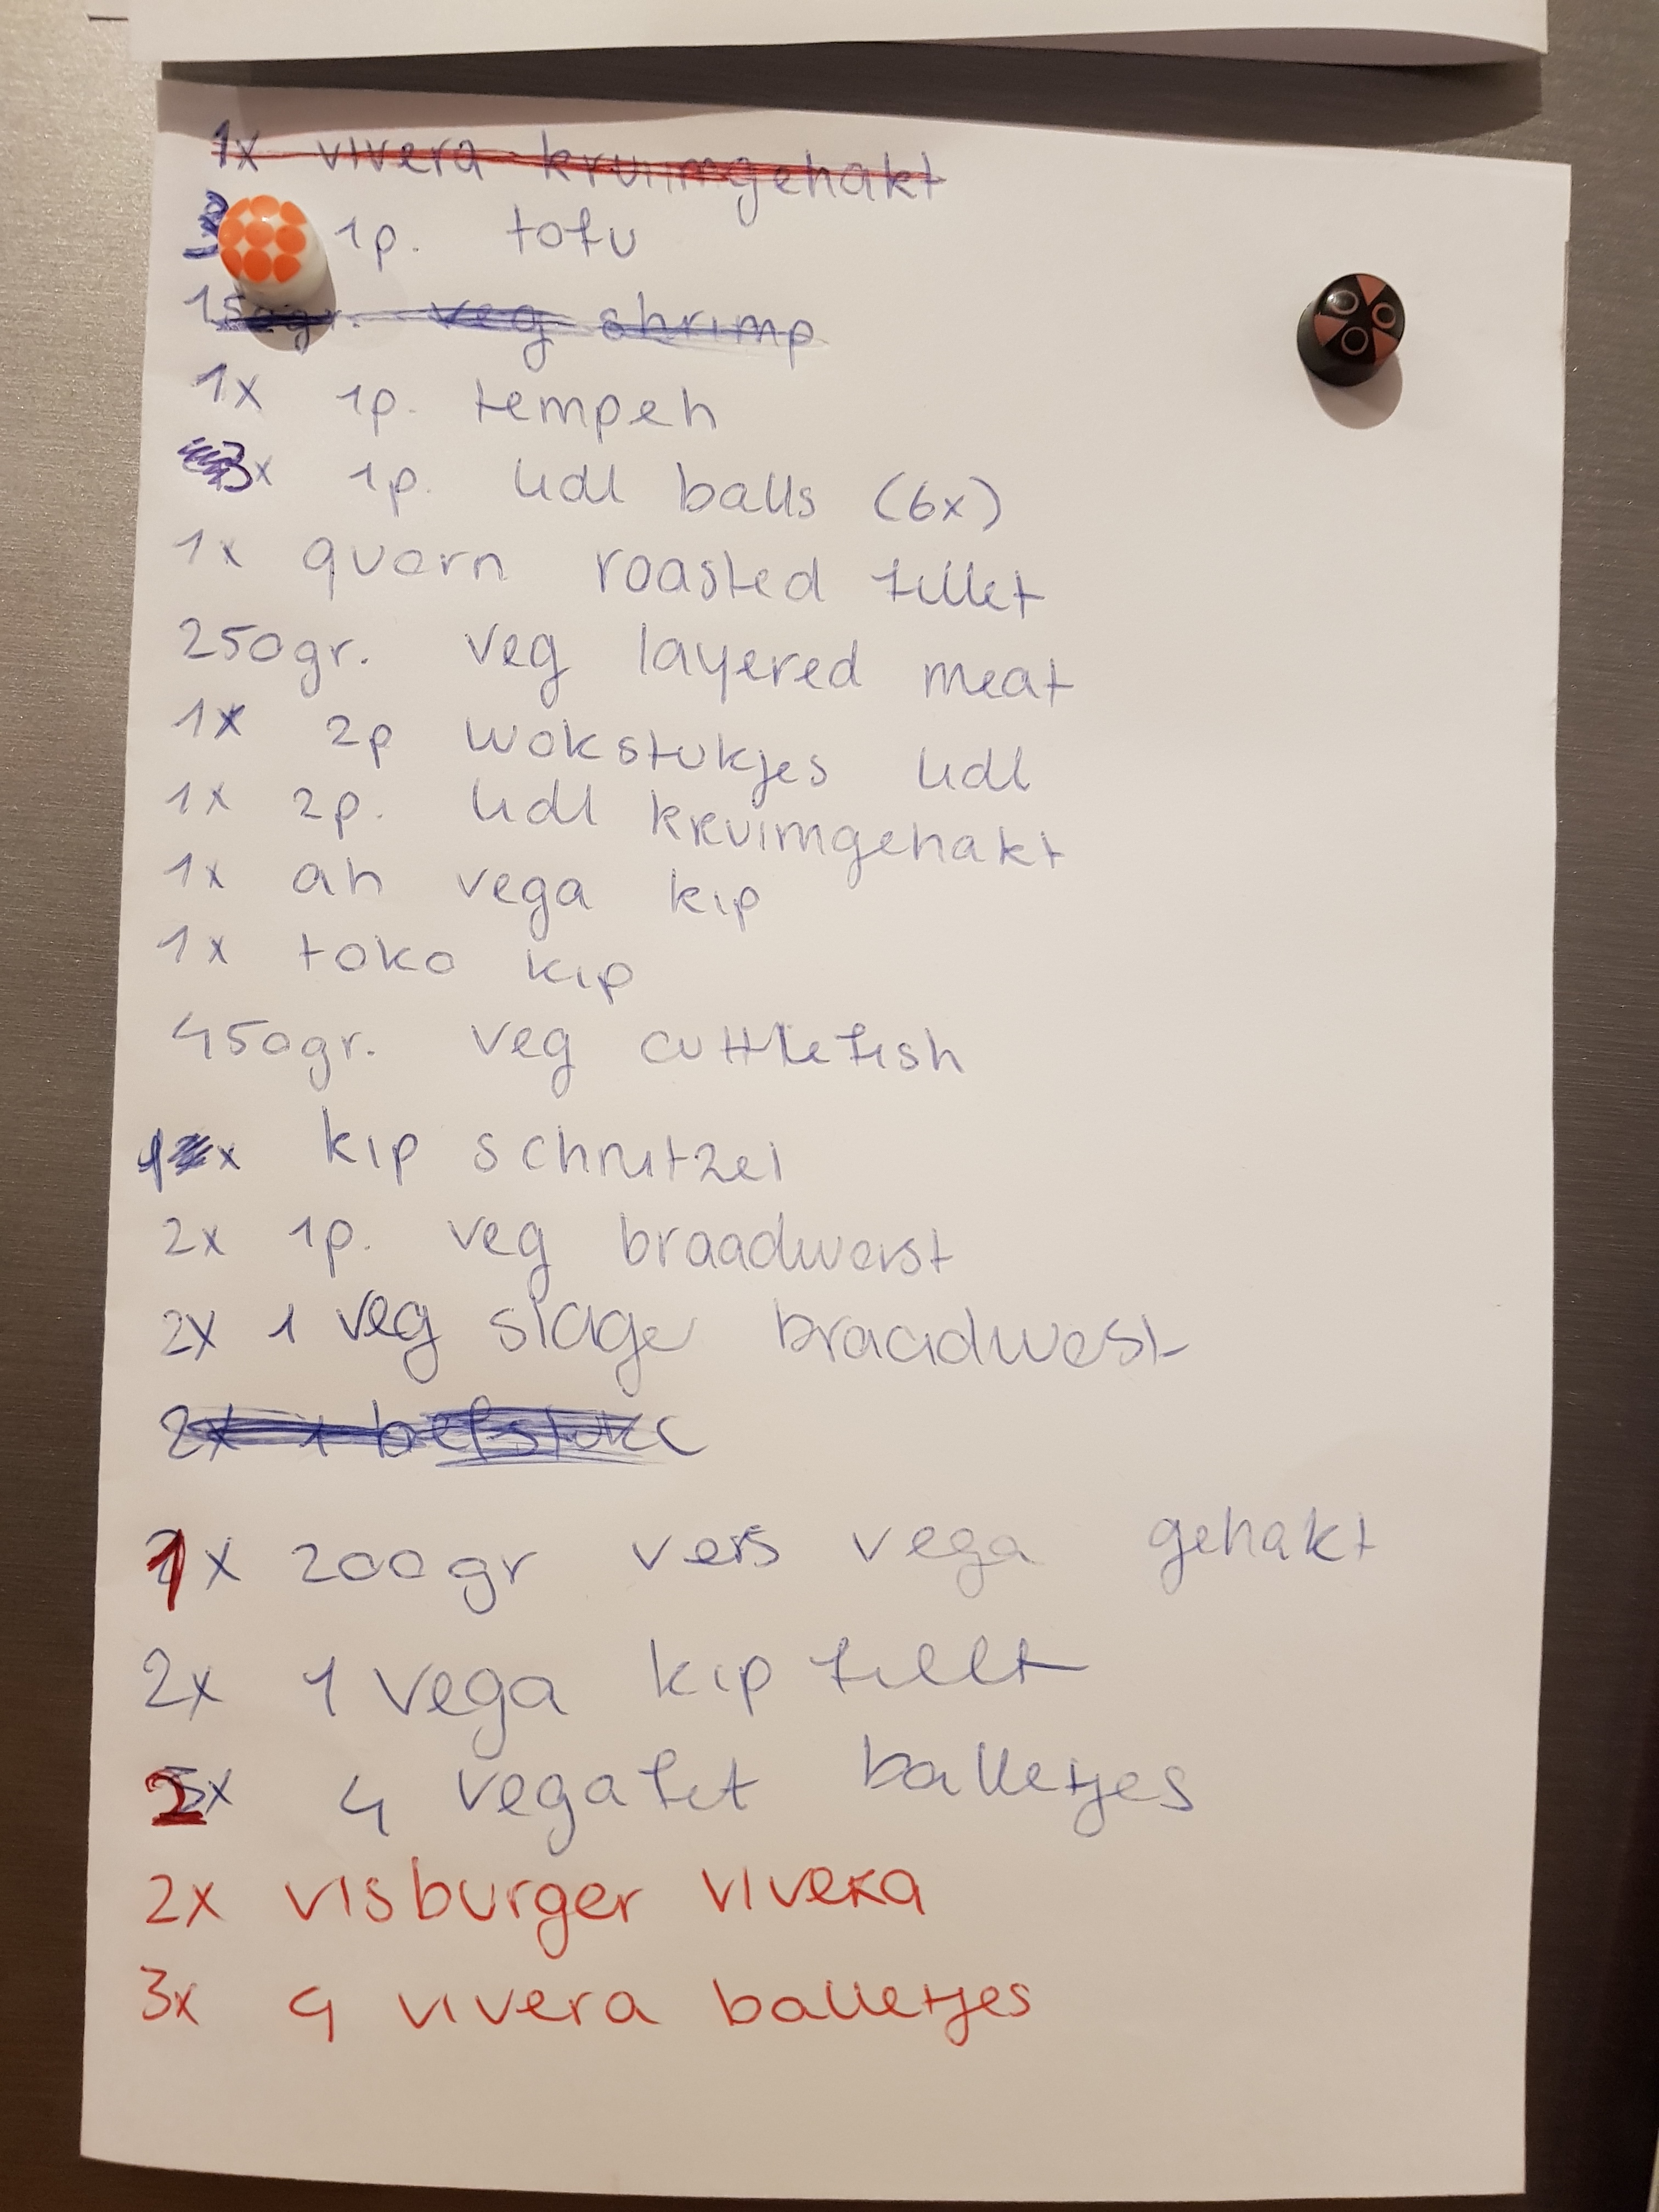 1x vivera kruimgehakt
3 1p. tofu
150gr. veg shrimp
1x 1p. tempeh
3x 1p. lidl balls (6x)
1x quorn roasted fillet
250gr. veg layered meat
1x 2p wokstukjes lidl
1x 2p. lidl kruimgehakt
1x ah vega kip
1x toko kip
450gr. veg cuttlefish
1x kip schnitzel
2x 1p. veg braadworst
2x 1 veg slage braadwost
2x 1 befstukc
1x 200gr vers vega gehakt
2x 1 vega kip fillt
2x 4 vegafit balletjes
2x visburger vivera
3x 4 vivera balletjes